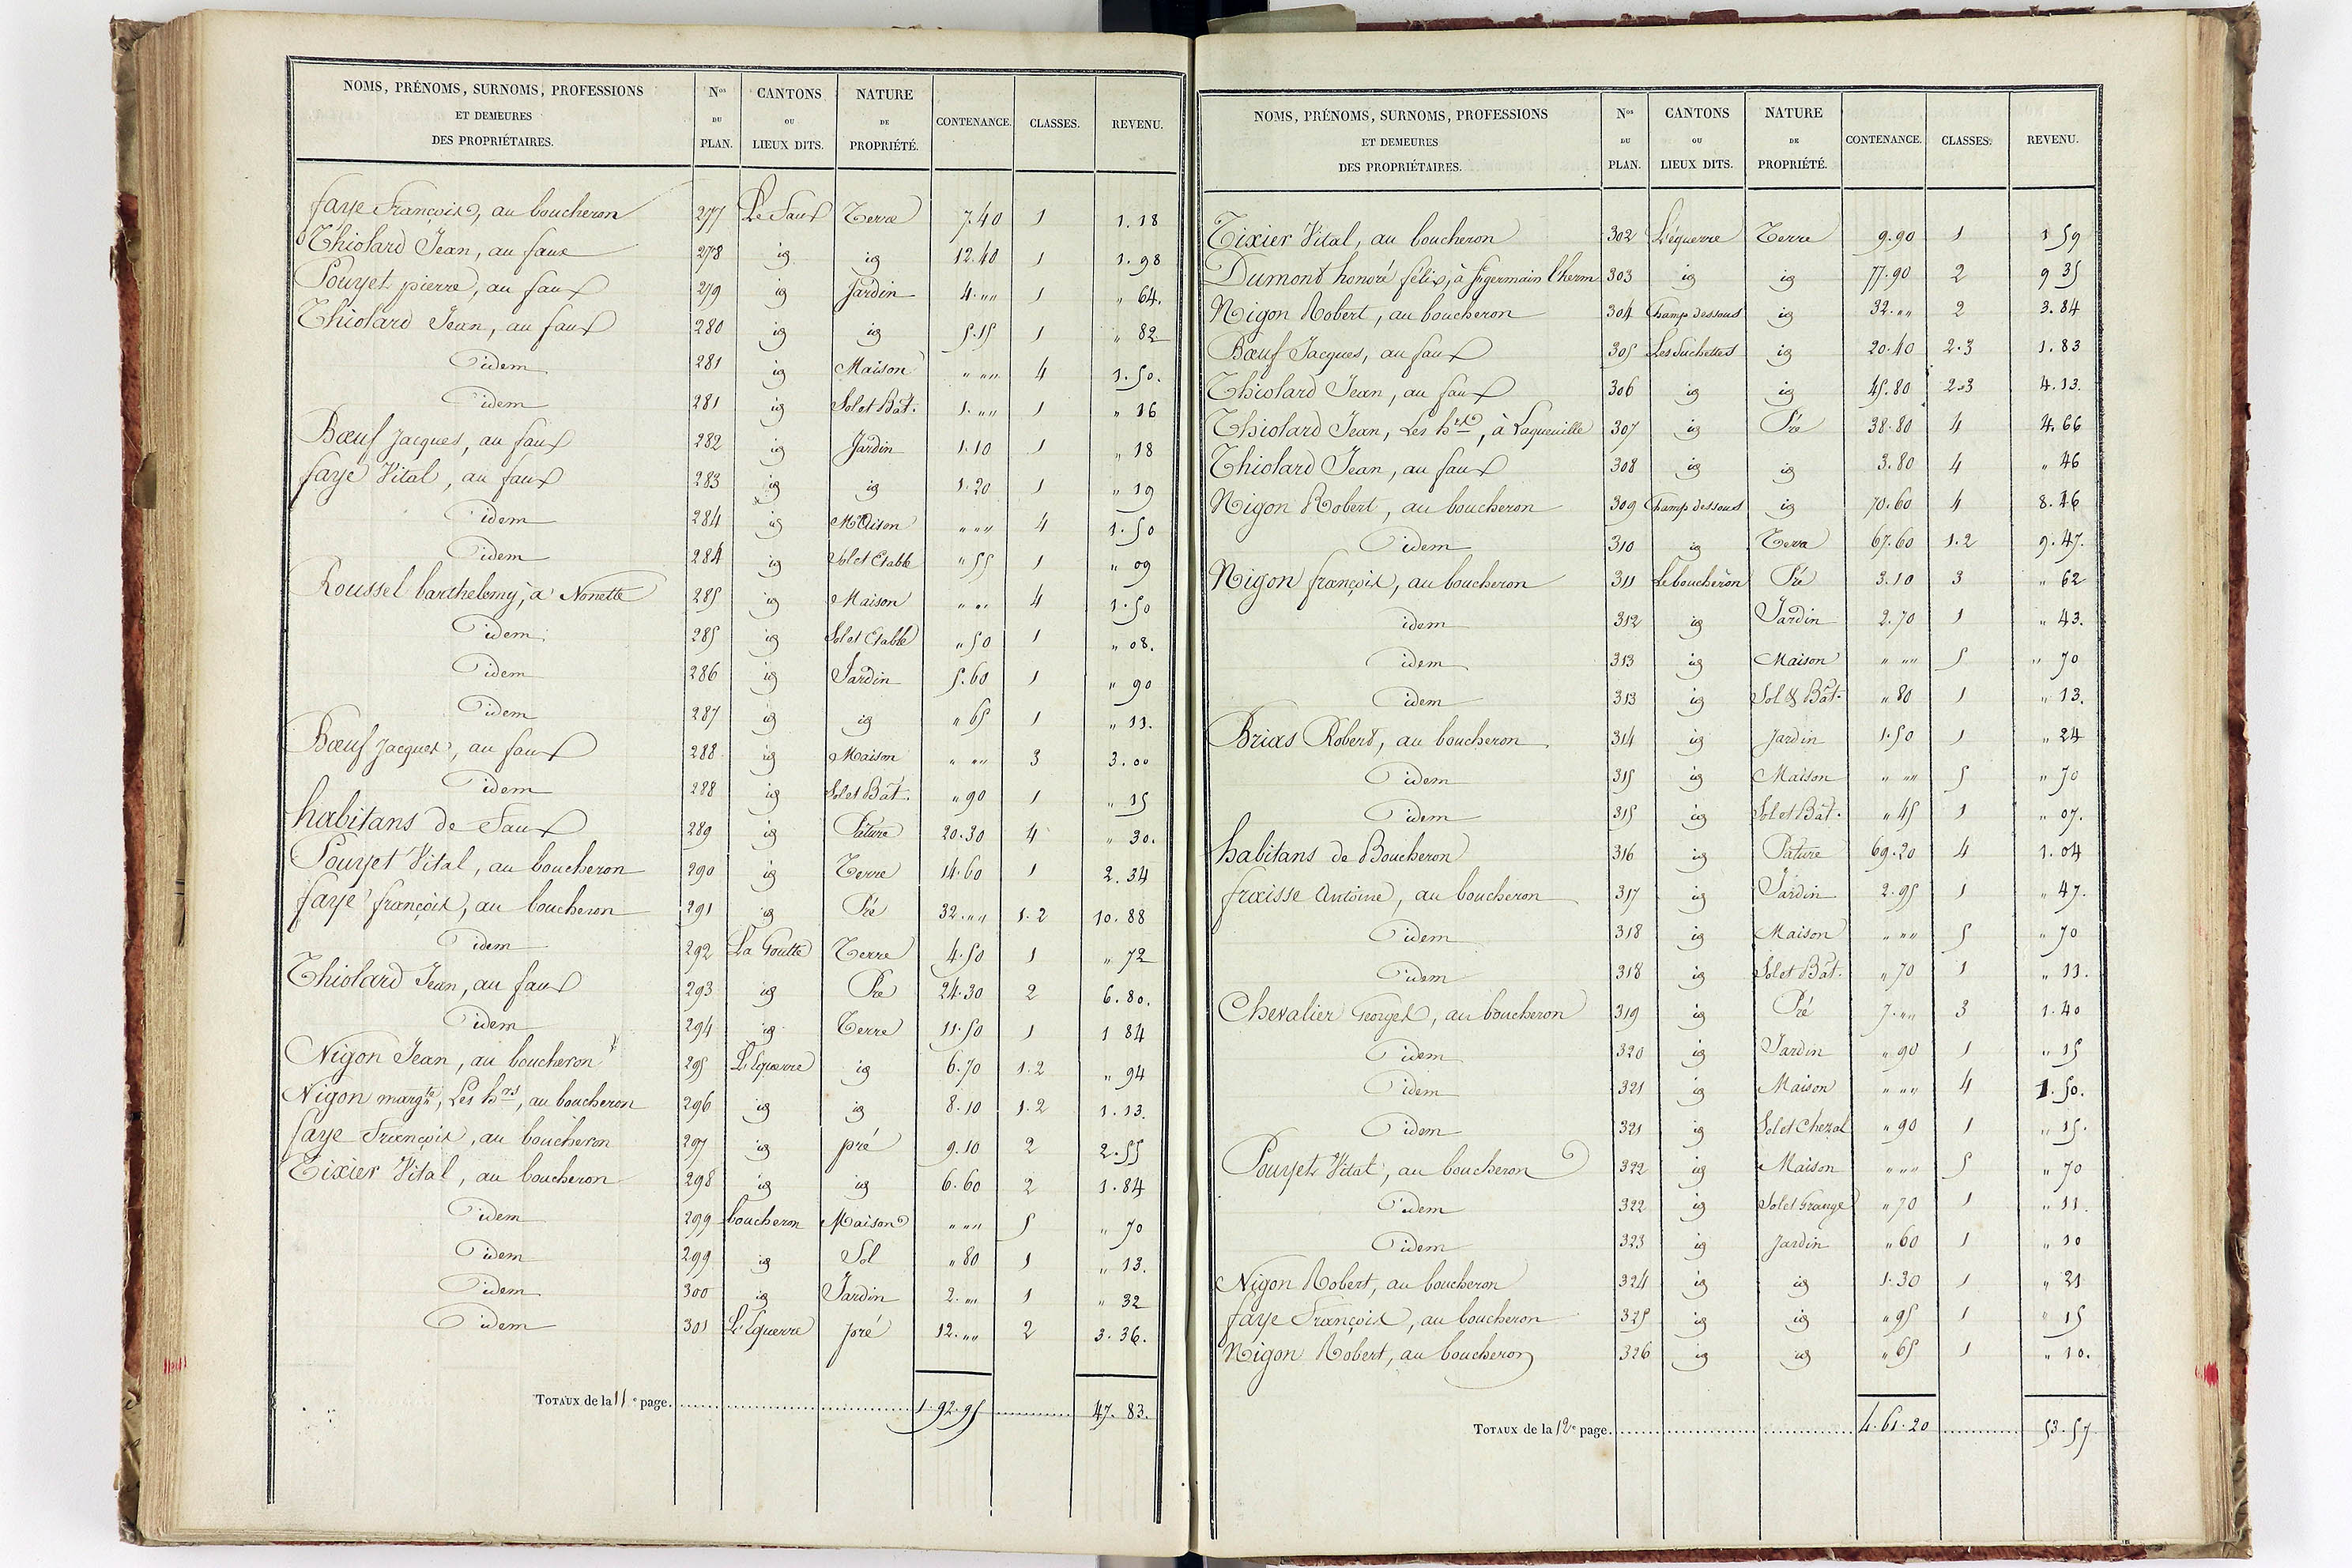 NOMS, PRÉNOMS, SURNOMS, PROFESSIONS ET DEMEURES DES PROPRIÉTAIRES. Nos DU PLAN. CANTONS OU LIEUX DITS. NATURE DE PROPRIÉTÉ. CONTENANCE. CLASSES. REVENU.
faye François, au boucheron 277 Le Faux Terre 7.40 1 1.18
Thiolard Jean, au faux 278 id id 12.40 1 1.98
Pouyet pierre, au faux 279 id Jardin 4."" 1 " 64.
Thiolard Jean, au faux 280 id id 5.15 1 " 82
idem 281 id Maison " "" 4 1.50.
idem 281 id Sol et Bât. 1."" 1 " 16
Bœuf Jacques, au faux 282 id Jardin 1.10 1 " 18
faye Vital, au faux 283 id id 1.20 1 " 19
idem 284 id Maison " "" 4 1.50
idem 284 id Sol et Etable " 55 1 " 09
Roussel barthelemy, à Nonette 285 id Maison " "" 4 1.50
idem 285 id Sol et Etable " 50 1 " 08.
idem 286 id Jardin 5.60 1 " 90
idem 287 id id " 65 1 " 11.
Bœuf Jacques, au faux 288 id Maison " "" 3 3.00
idem 288 id Sol et Bât. " 90 1 " 15
habitans de Faux 289 id Pature 20.30 4 " 30.
Pouyet Vital, au boucheron 290 id Terre 14.60 1 2.34
faye françois, au boucheron 291 id Pré 32."" 1.2 10.88
idem 292 La Goutte Terre 4.50 1 " 72
Thiolard Jean, au faux 293 id Pré 24.30 2 6.80.
idem 294 id Terre 11.50 1 1 84
Nigon Jean, au boucheron 295 L'Equerre id 6.70 1.2 " 94
Nigon margte, Les hrs, au boucheron 296 id id 8.10 1.2 1.13.
faye François, au boucheron 297 id pré 9.10 2 2.55
Tixier Vital, au boucheron 298 id id 6.60 2 1.84
idem 299 boucheron Maison " "" 5 " 70
idem 299 id Sol " 80 1 " 13.
idem 300 id Jardin 2."" 1 " 32
idem 301 L'Equerre pré 12."" 2 3.36.
TOTAUX de la 11e page. 1.92.95 47.83.
NOMS, PRÉNOMS, SURNOMS, PROFESSIONS ET DEMEURES DES PROPRIÉTAIRES. Nos DU PLAN. CANTONS OU LIEUX DITS. NATURE DE PROPRIÉTÉ. CONTENANCE. CLASSES. REVENU.
Tixier Vital, au boucheron 302 L'équerre Terre 9.90 1 1 59
Dumont honoré felix, à St germain l'herm 303 id id 77.90 2 9 35
Nigon Robert, au boucheron 304 Champ dessous id 32."" 2 3.84
Bœuf Jacques, au faux 305 Les Suchettes id 20.40 2.3 1.83
Thiolard Jean, au faux 306 id id 45.80 2.3 4.13.
Thiolard Jean, Les hrs, à Laqueuille 307 id Pré 38.80 4 4.66
Thiolard Jean, au faux 308 id id 3.80 4 " 46
Nigon Robert, au boucheron 309 Champ dessous id 70.60 4 8.46
idem 310 id Terre 67.60 1.2 9.47.
Nigon françois, au boucheron 311 Le boucheron Pré 3.10 3 " 62
idem 312 id Jardin 2.70 1 " 43.
idem 313 id Maison " "" 5 " 70
idem 313 id Sol & Bât. " 80 1 " 13.
Brias Robert, au boucheron 314 id Jardin 1.50 1 " 24
idem 315 id Maison " "" 5 " 70
idem 315 id Sol et Bât. " 45 1 " 07.
habitans de Boucheron 316 id Pature 69.20 4 1.04
fraisse Antoine, au boucheron 317 id Jardin 2.95 1 " 47.
idem 318 id Maison " "" 5 " 70
idem 318 id Sol et Bât. " 70 1 " 11.
Chevalier Georges, au boucheron 319 id Pré 7."" 3 1.40
idem 320 id Jardin " 90 1 " 15
idem 321 id Maison " "" 4 1.50.
idem 321 id Sol et Chezal " 90 1 " 15.
Pouyet Vital, au boucheron 322 id Maison " "" 5 " 70
idem 322 id Sol et Grange " 70 1 " 11.
idem 323 id Jardin " 60 1 " 10
Nigon Robert, au boucheron 324 id id 1.30 1 " 21
faye François, au boucheron 325 id id " 95 1 " 15
Nigon Robert, au boucheron 326 id id " 65 1 " 10.
TOTAUX de la 12e page. 4.61.20 53.57